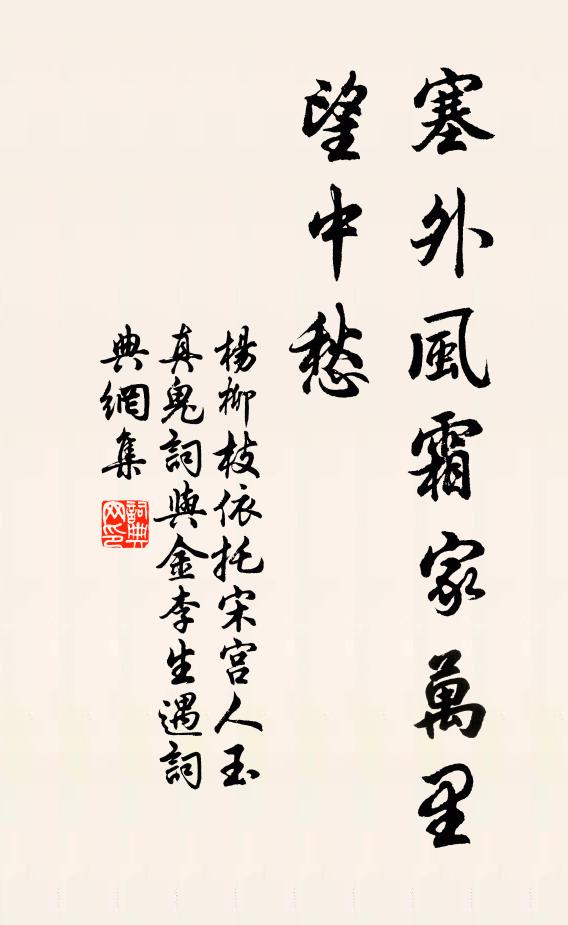 塞外風霜家萬里
望中愁
楊柳枝依托宋宮人玉
真鬼詞與金李生遇詞
典網集
詞典网印